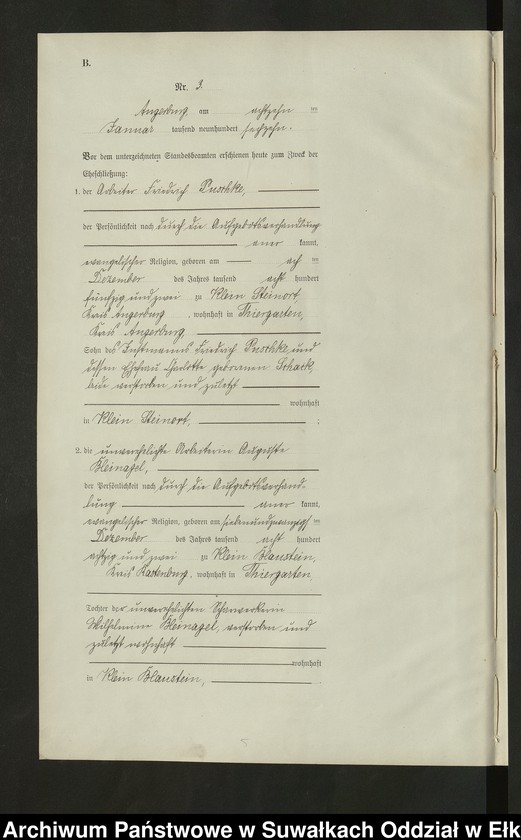 B.
Nr. 3.
Angerburg am achtzehn ten
Januar tausend neunhundert sechzehn.
Vor dem unterzeichneten Standesbeamten erschienen heute zum Zweck der
Eheschließung:
1. der Arbeiter Friedrich Puschke,
der Persönlichkeit nach durch die Aufgebotsverhandlung
aner kannt,
evangelischer Religion, geboren am ach ten
Dezember des Jahres tausend acht hundert
fünfzig und zwei zu Klein Steinort,
Kreis Angerburg, wohnhaft in Thiergarten,
Kreis Angerburg
Sohn des Instmanns Friedrich Puschke, und
dessen Ehefrau Charlotte geborenen Schack,
beide verstorben und zuletzt
wohnhaft
in Klein Steinort, ;
2. die unverehelichte Arbeiterin Auguste
Bleinagel,
der Persönlichkeit nach durch die Aufgebotsverhand-
lung aner kannt,
evangelischer Religion, geboren am siebenundzwanzigs ten
Dezember des Jahres tausend acht hundert
achtzig und zwei zu Klein Blaustein,
Kreis Rastenburg, wohnhaft in Thiergarten,
Tochter der unverehelichten Scharwerkerin
Wilhelmine Bleinagel, verstorben und
zuletzt wohnhaft
wohnhaft
in Klein Blaustein, .
Archiwum Państwowe w Suwałkach Oddział w Ełk